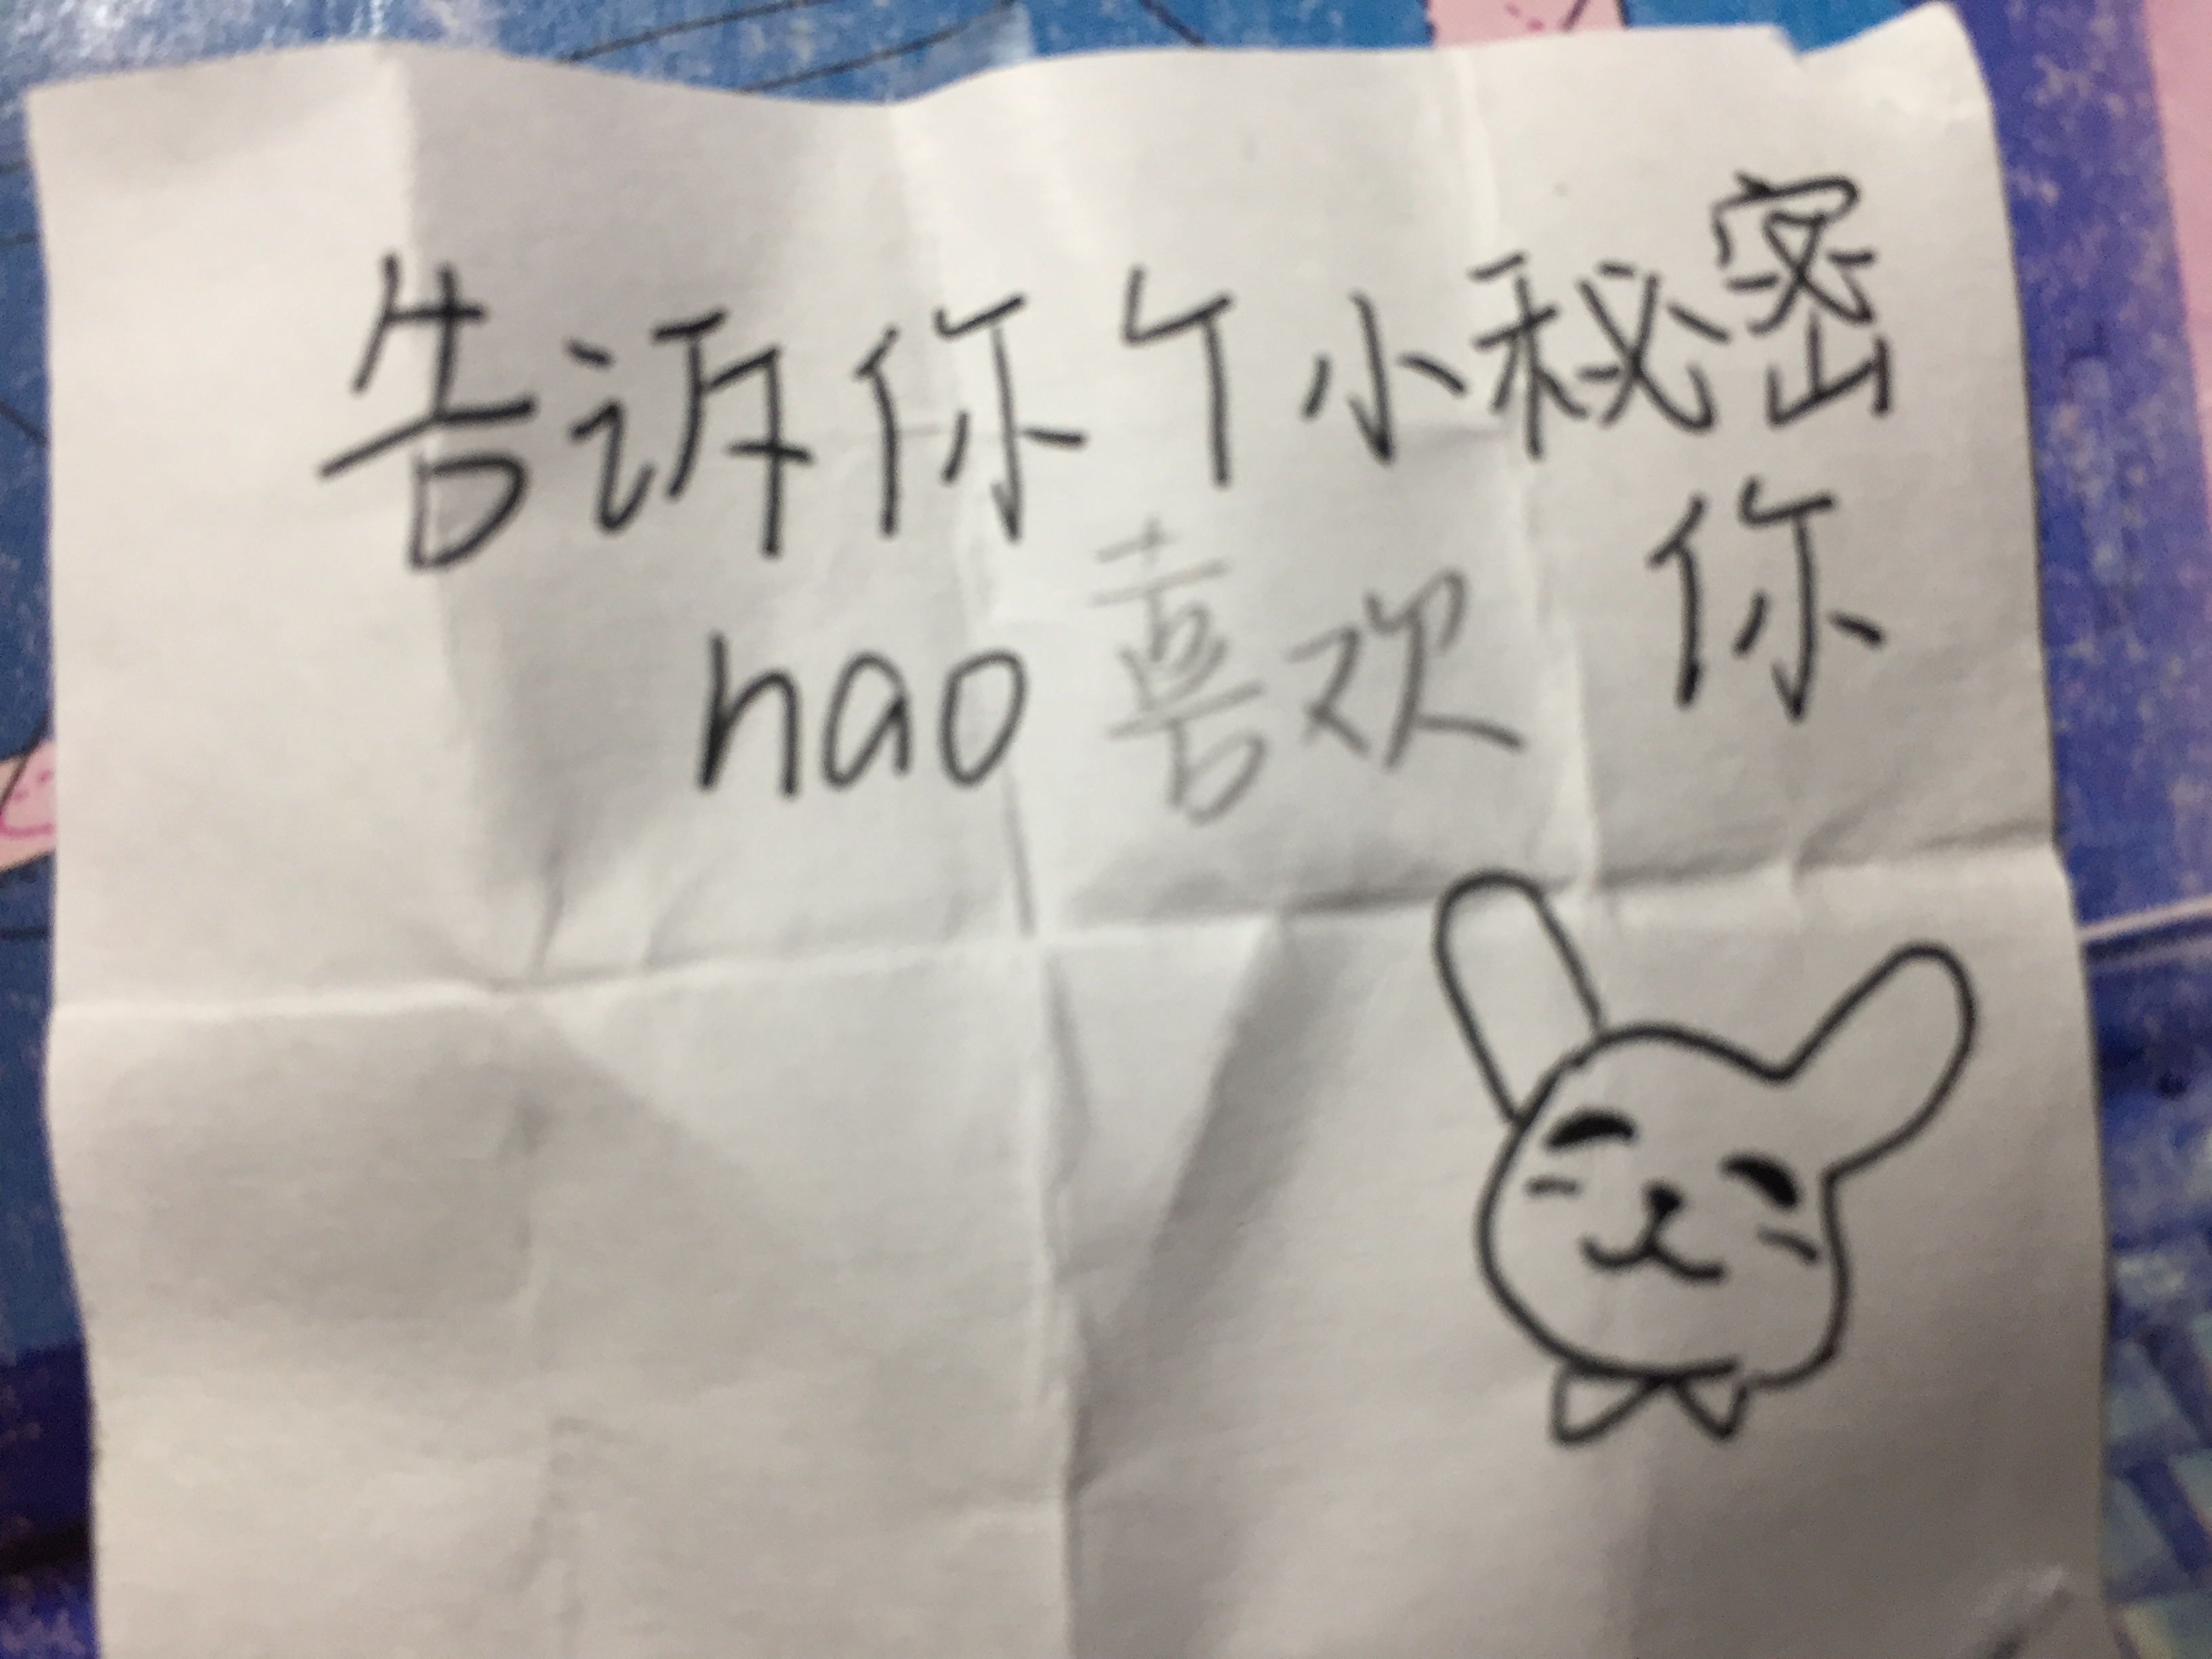 告诉你个小秘密
hao 喜欢 你